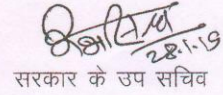 28.1.19
सरकार के उप सचिव